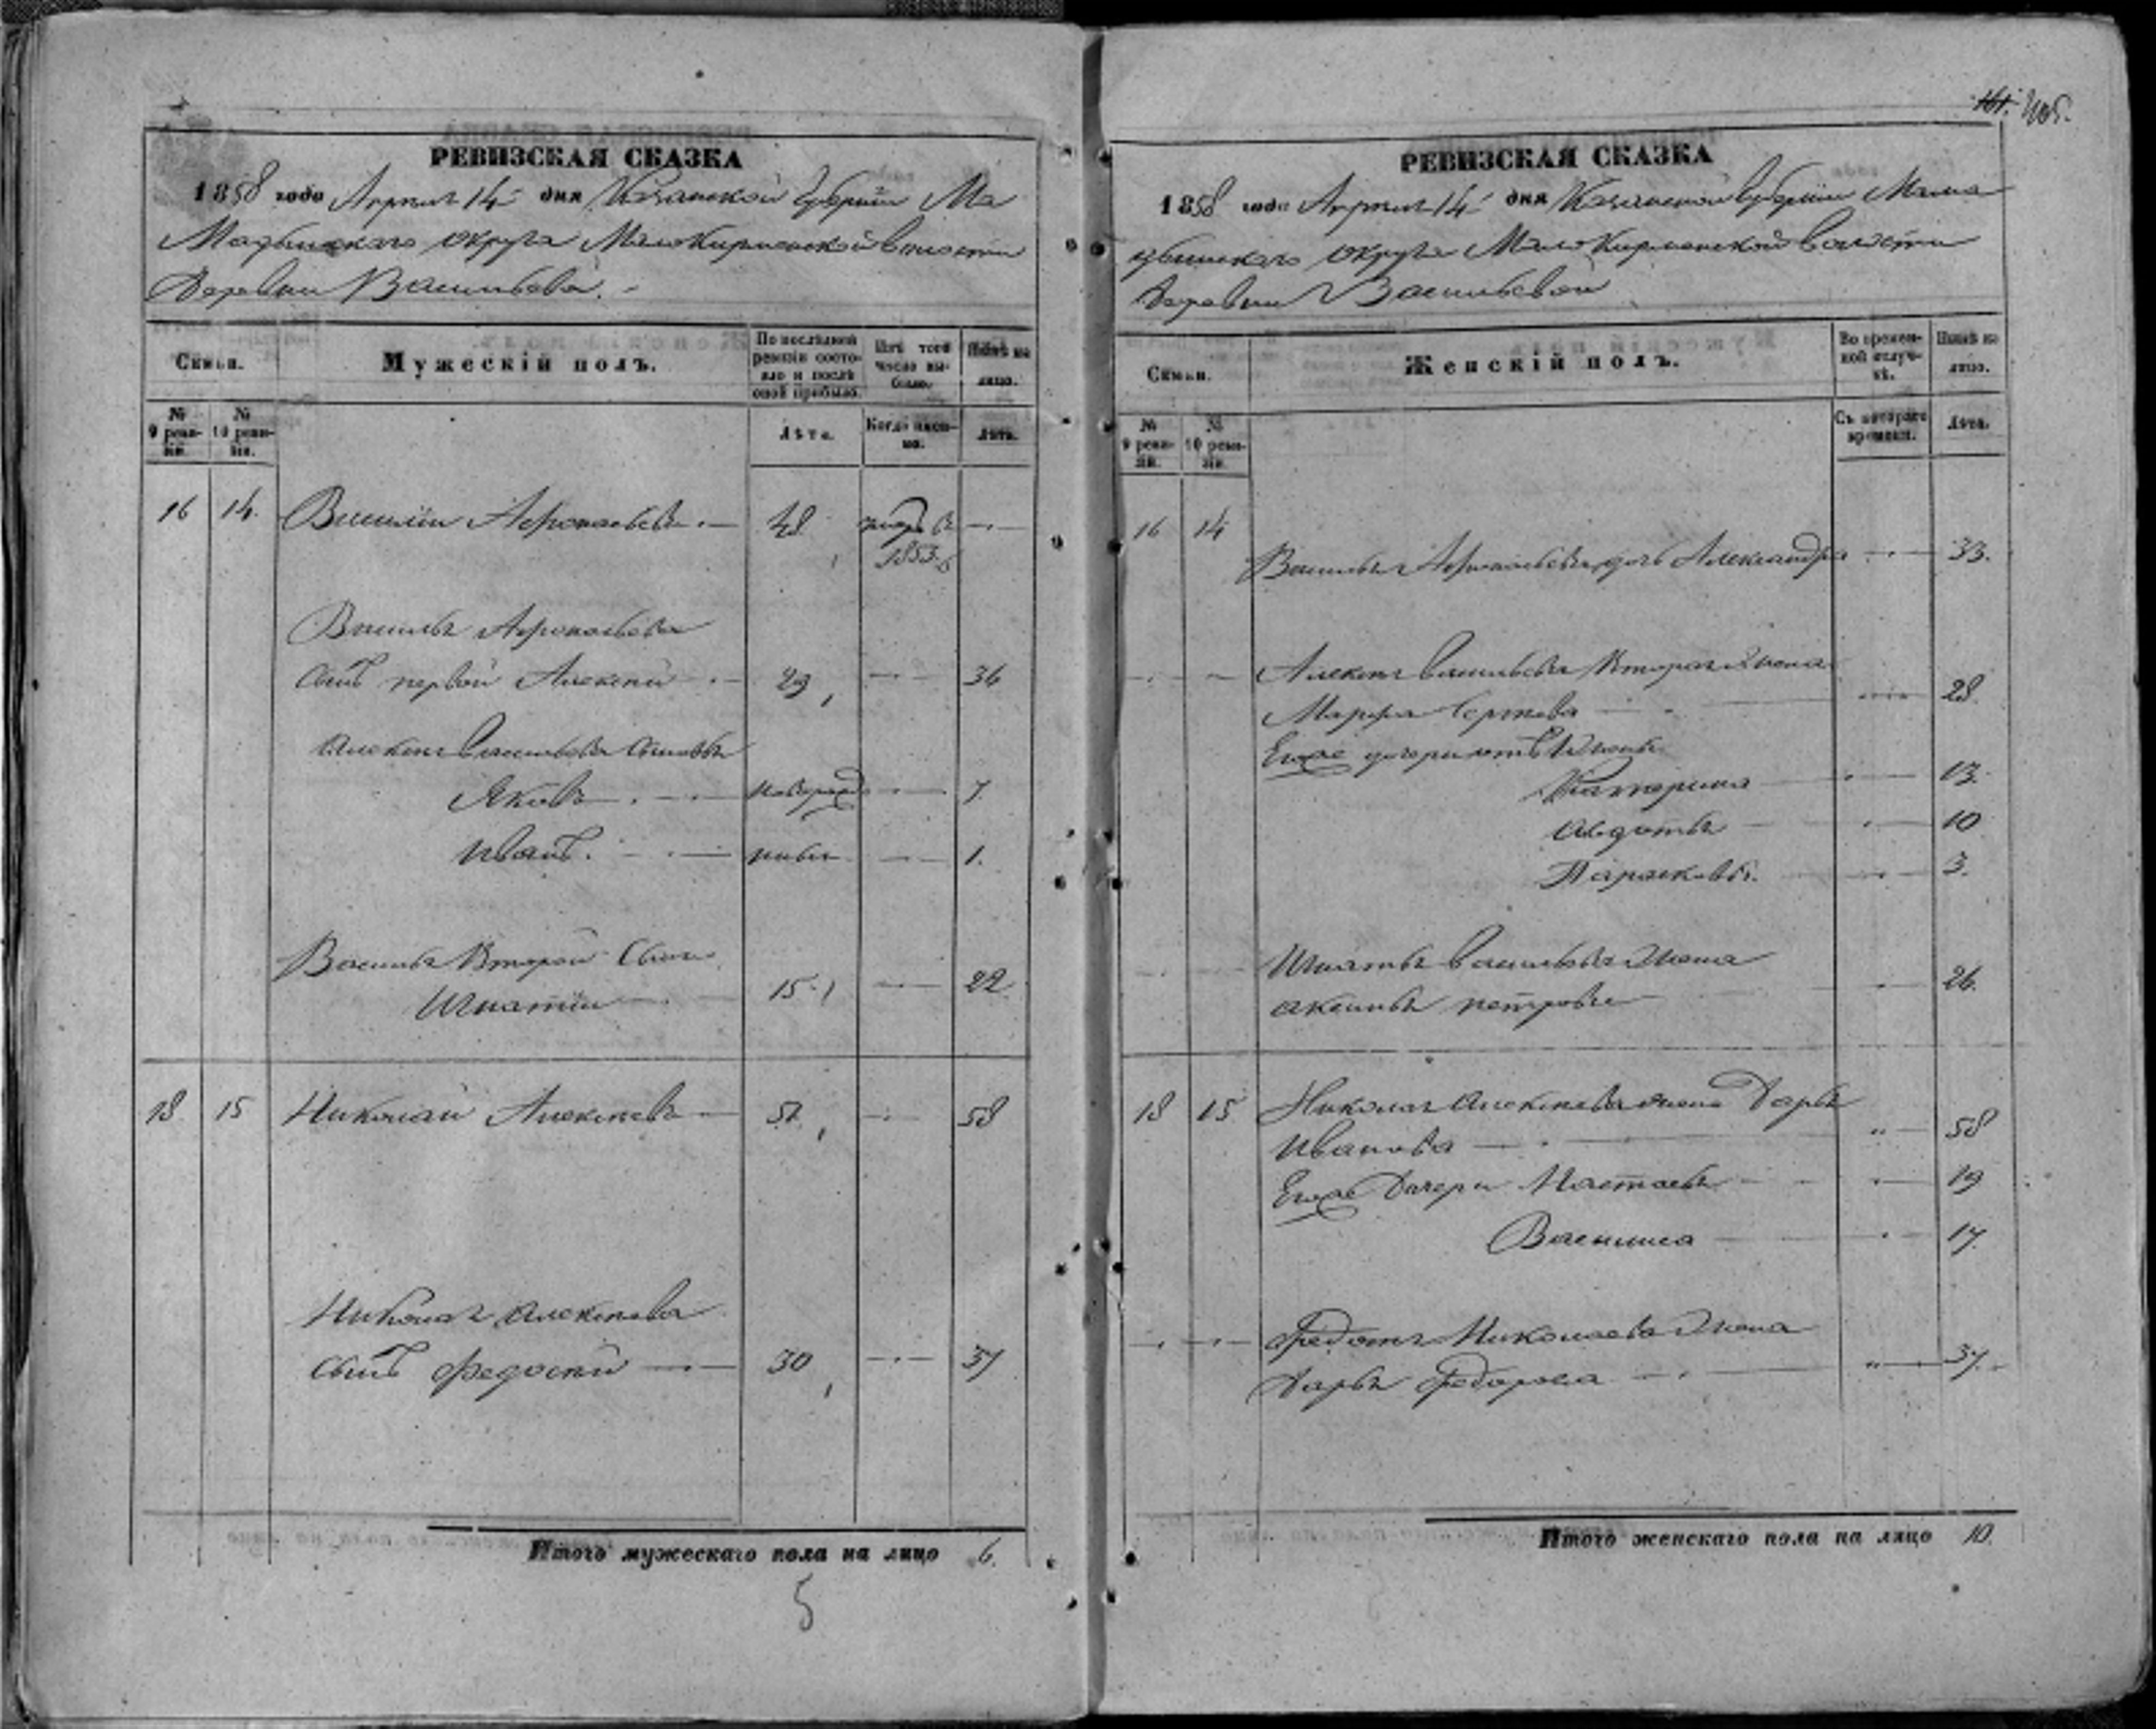 РЕВИЗСКАЯ СКАЗКА
1858 года Апреля 14 дня Казанской Губернiи Ма
Мадышскаго округа Мало Кирменской Волости
Деревни Васильевой.
Семьи.
Мужескiй полъ.
По послѣдней ревизiи состояло и послѣ оной прибыло.
Изъ того числа выбыло.
Нынѣ на лицо.
№ 9 ревизiи.
№ 10 ревизiи.
Лѣта.
Когда именно.
Лѣта.
16 14. Василiй Афонасьевъ 48
1853.
Василья Афонасьева
сынъ первой Алексей 29 36
Алексея Васильева сыновья
Яковъ новорожд 7
Иванъ. 1.
Василья Второй Сынъ
Игнатiй 15 22
18 15 Николай Алексеевъ 51 58
Николая Алексеева
сынъ Федосей 30 37
Итого мужескаго пола на лицо 6.
5
161. 405.
РЕВИЗСКАЯ СКАЗКА
1858 года Апреля 14 дня Казанской Губернiи Мама
дышскаго округа Мало Кирменской Волости
Деревни Васильевой
Семьи.
Женскiй полъ.
Во временной отлучкѣ.
Нынѣ на лицо.
№ 9 ревизiи.
№ 10 ревизiи.
Съ котораго времени.
Лѣта.
16 14
Василья Афонасьева дочь Александра 33.
Алексея Васильева Вторая Жена
Марфа Сергеева 28
Егоже дочери отъ 1й жены
Катерина 13.
Авдотья 10
Парасковья. 3.
Игнатья Васильева Жена
Аксинья Петрова 26.
18 15. Николая Алексеева жена Дарья
Иванова 58
Егоже Дочери Настасья 19
Василиса 17.
Николаева Жена
Дарья Федорова 37.
Итого женскаго пола на лицо 10.